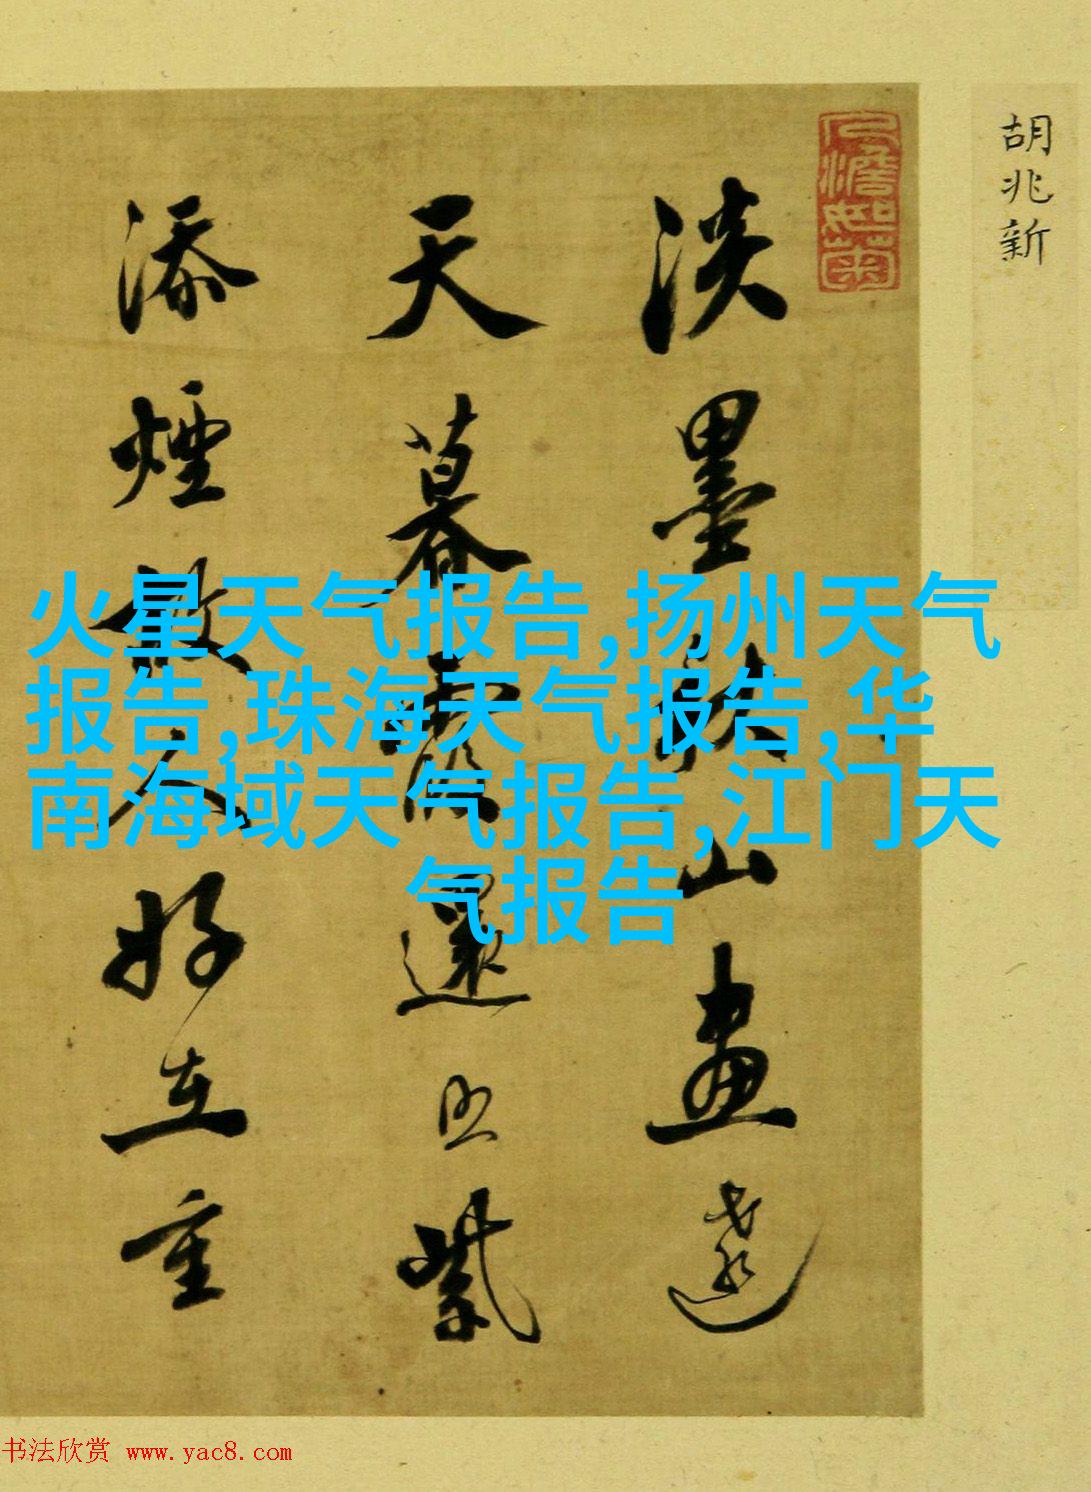 胡兆新
人澹如菊
淡墨秋山畫遠
天暮霞還照紫
添煙故人好在重
火星天气报告,扬州天气
报告,珠海天气报告,华
南海域天气报告,江门天
气报告
书法欣赏 www.yac8.com